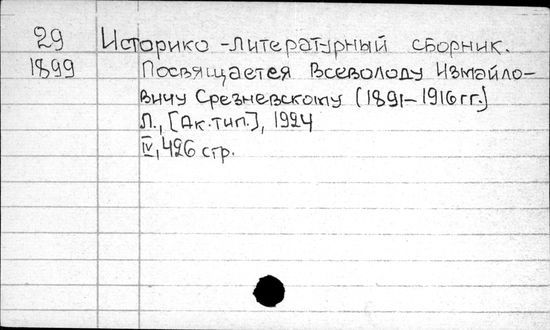 29 Историко-литературный сборник.
1899 Посвящается Всеволоду Измайло-
вичу Срезневскому (1891-1916 гг.)
Л., [Ак. тип.], 1924
IV, 426 стр.